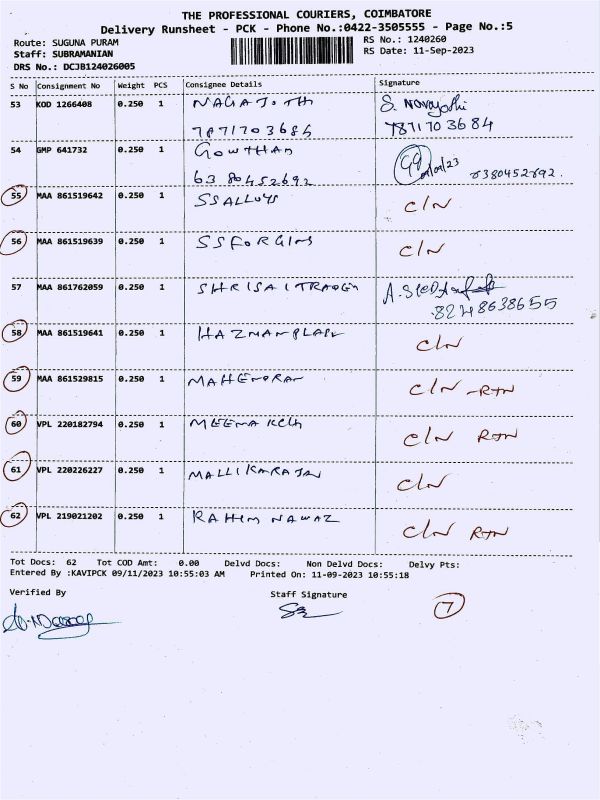 THE PROFESSIONAL COURIERS, COIMBATORE
Delivery Runsheet - PCK - Phone No.:0422-3505555 - Page No.:5
Route: SUGUNA PURAM
RS No.: 1240260
Staff: SUBRAMANIAN
RS Date: 11-Sep-2023
DRS No.: DCJB124026005
S No Consignment No Weight PCS Consignee Details Signature
53 KOD 1266408 0.250 1 NAGAJOTHI
7871703684 7871703684
54 GMP 641732 0.250 1 GOWTHAM
6380452692 6380452692.
55 MAA 861519642 0.250 1 SSALLOYS C/N
56 MAA 861519639 0.250 1 SSFORGING C/N
57 MAA 861762059 0.250 1 SHRISAITRADGN
8248638655
58 MAA 861519641 0.250 1 C/N
59 MAA 861529815 0.250 1 MAHENDRAN C/N -RTN
60 VPL 220182794 0.250 1 MEENA C/N RTN
61 VPL 220226227 0.250 1 MALLIKARAJAN C/N
62 VPL 219021202 0.250 1 RAHIM NAWAZ C/N RTN
Tot Docs: 62 Tot COD Amt: 0.00 Delvd Docs: Non Delvd Docs: Delvy Pts:
Entered By :KAVIPCK 09/11/2023 10:55:03 AM Printed On: 11-09-2023 10:55:18
Verified By Staff Signature
7